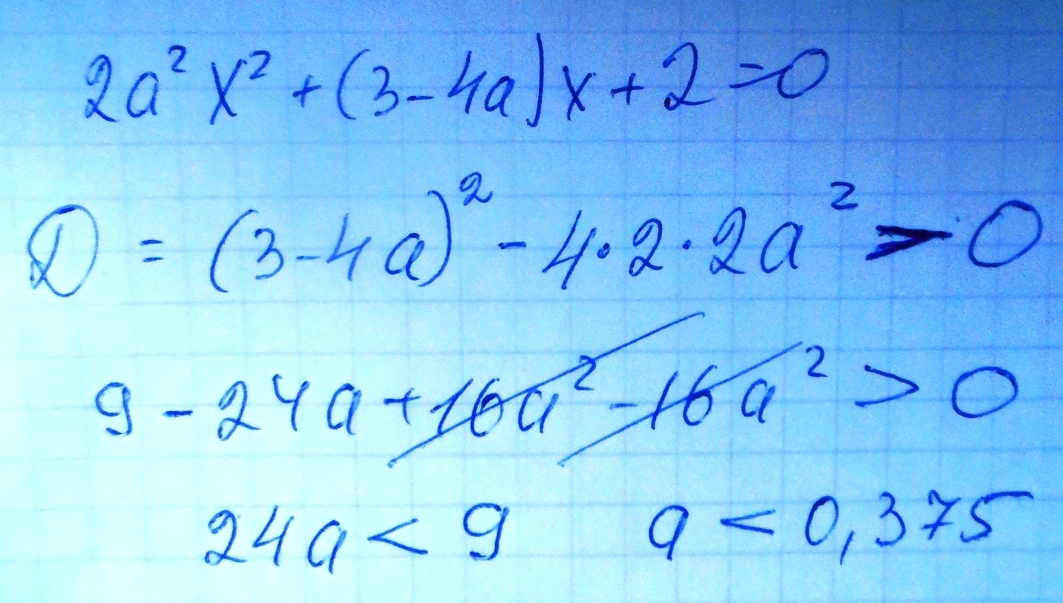 2a² x² + (3-4a)x + 2 = 0
D = (3-4a)² - 4·2·2a² > 0
9 - 24a + 16a² - 16a² > 0
24a < 9   a < 0,375